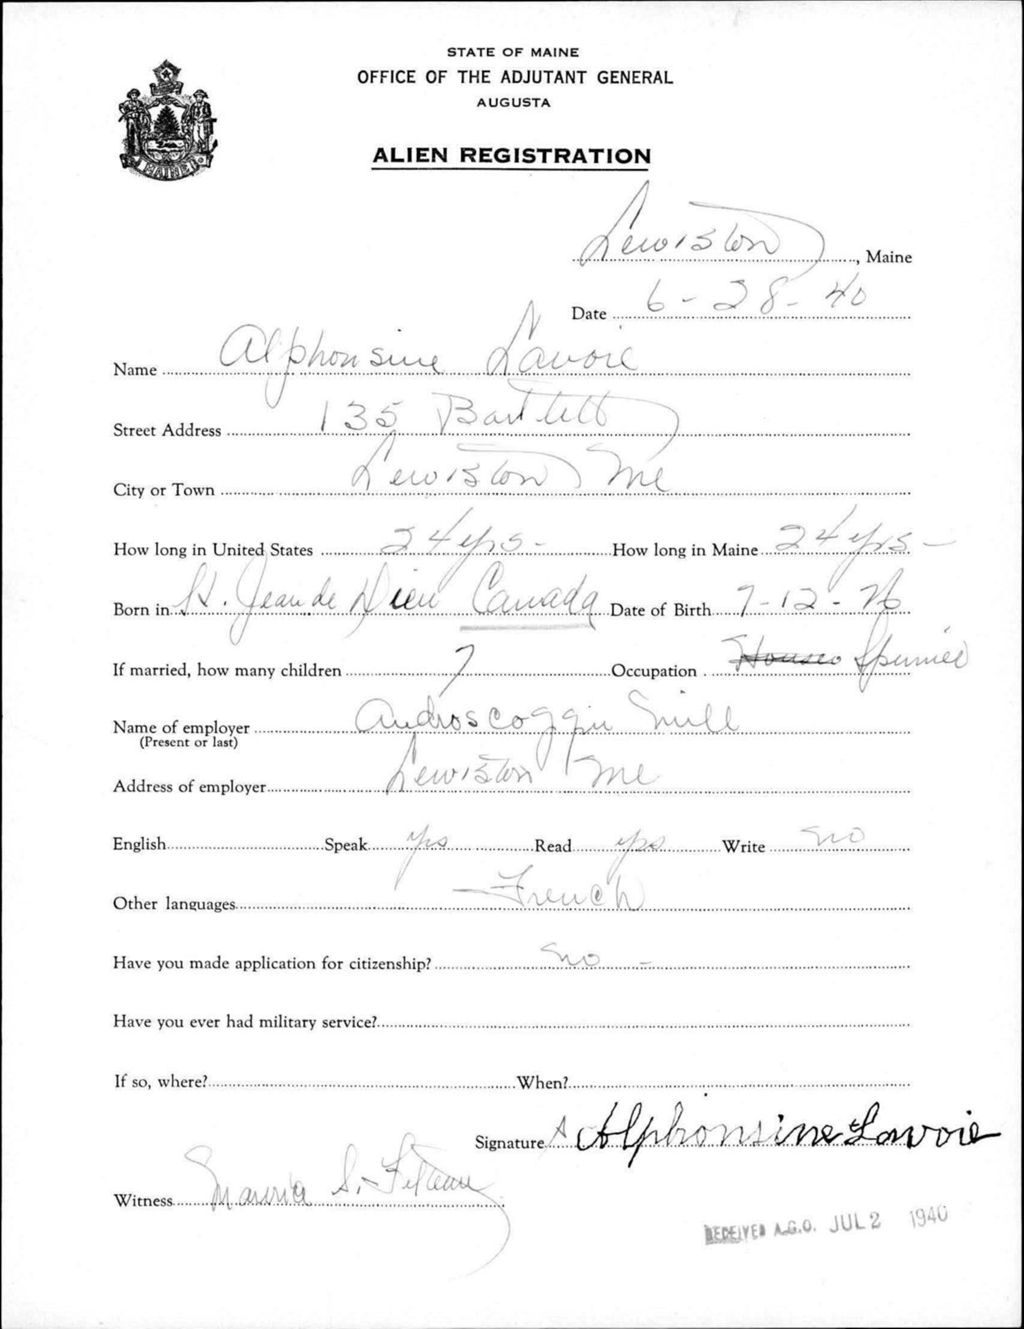 STATE OF MAINE
OFFICE OF THE ADJUTANT GENERAL
AUGUSTA
MAINE
ALIEN REGISTRATION
Lewiston, Maine
Date 6-28-40
Name Alphonsine Lavoie
Street Address 135 Bartlett
City or Town Lewiston Me
How long in United States 24 yrs- How long in Maine 24 yrs-
Born in St. Jean de Dieu Canada Date of Birth 7-12-76
If married, how many children 7 Occupation Spinner
Name of employer Androscoggin Mill
(Present or last)
Address of employer Lewiston Me
English Speak yes Read yes Write no
Other languages French
Have you made application for citizenship? no -
Have you ever had military service?
If so, where? When?
Signature Alphonsine Lavoie
Witness S.
RECEIVED A.G.O. JUL 2 1940